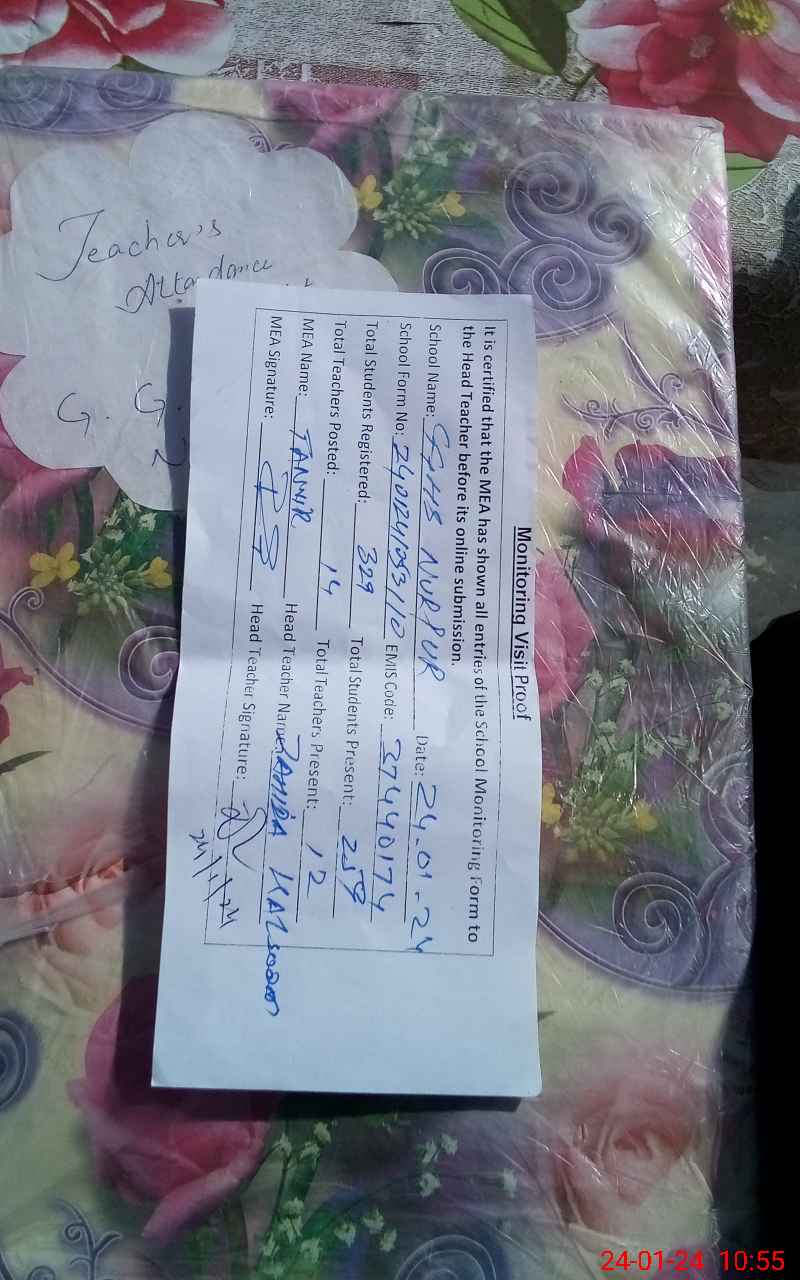 Teacher's
Attandance
G. G.
Monitoring Visit Proof
It is certified that the MEA has shown all entries of the School Monitoring Form to
the Head Teacher before its online submission.
School Name: GGHS NURPUR Date: 24-01-24
School Form No: EMIS Code: 37440174
Total Students Registered: 329 Total Students Present: 259
Total Teachers Posted: 14 Total Teachers Present: 12
MEA Name: TANVIR Head Teacher Name: ZAHIDA
MEA Signature: Head Teacher Signature:
24/1/24
24-01-24 10:55